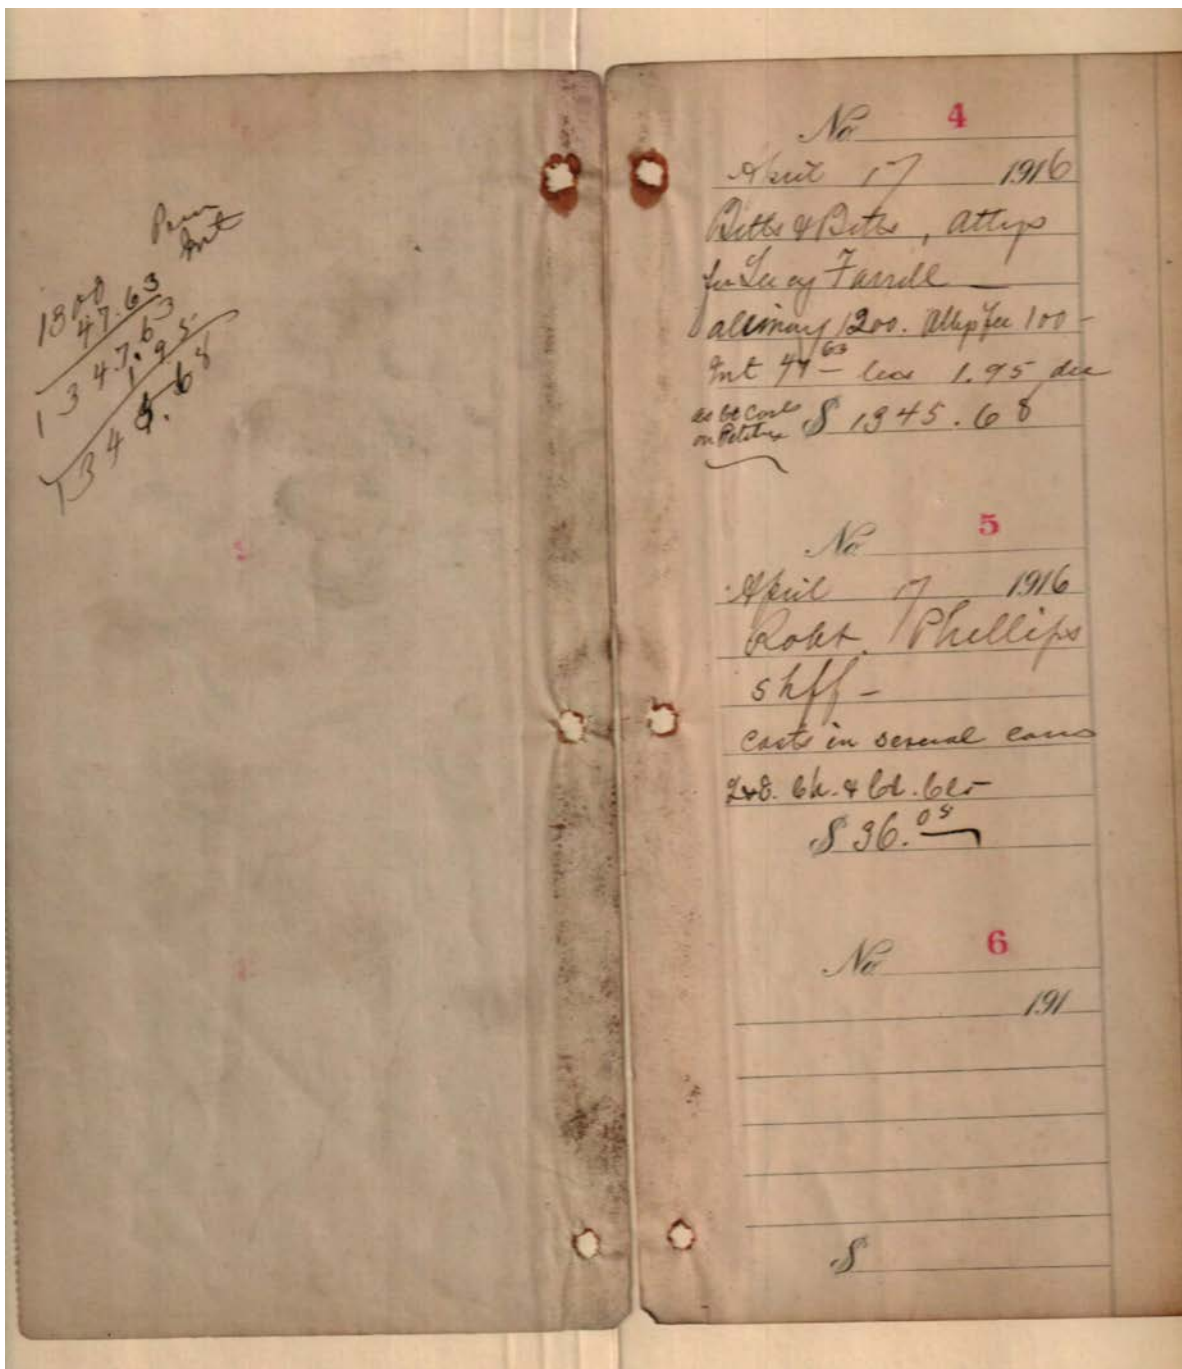 Prin
Int
1300
47.63
1347.63
1.95
1345.68
No 4
April 17 1916
Betts & Betts, Attys
for Lucy Farrell —
alimony 1200. Attys fee 100 -
Int 47 63 less 1.95 due
as bc Costs
on Petition $ 1345.68
No 5
April 17 1916
Robt. Phillips
shff -
Costs in several cases
Ch. &
$ 36.08
No 6
191
$